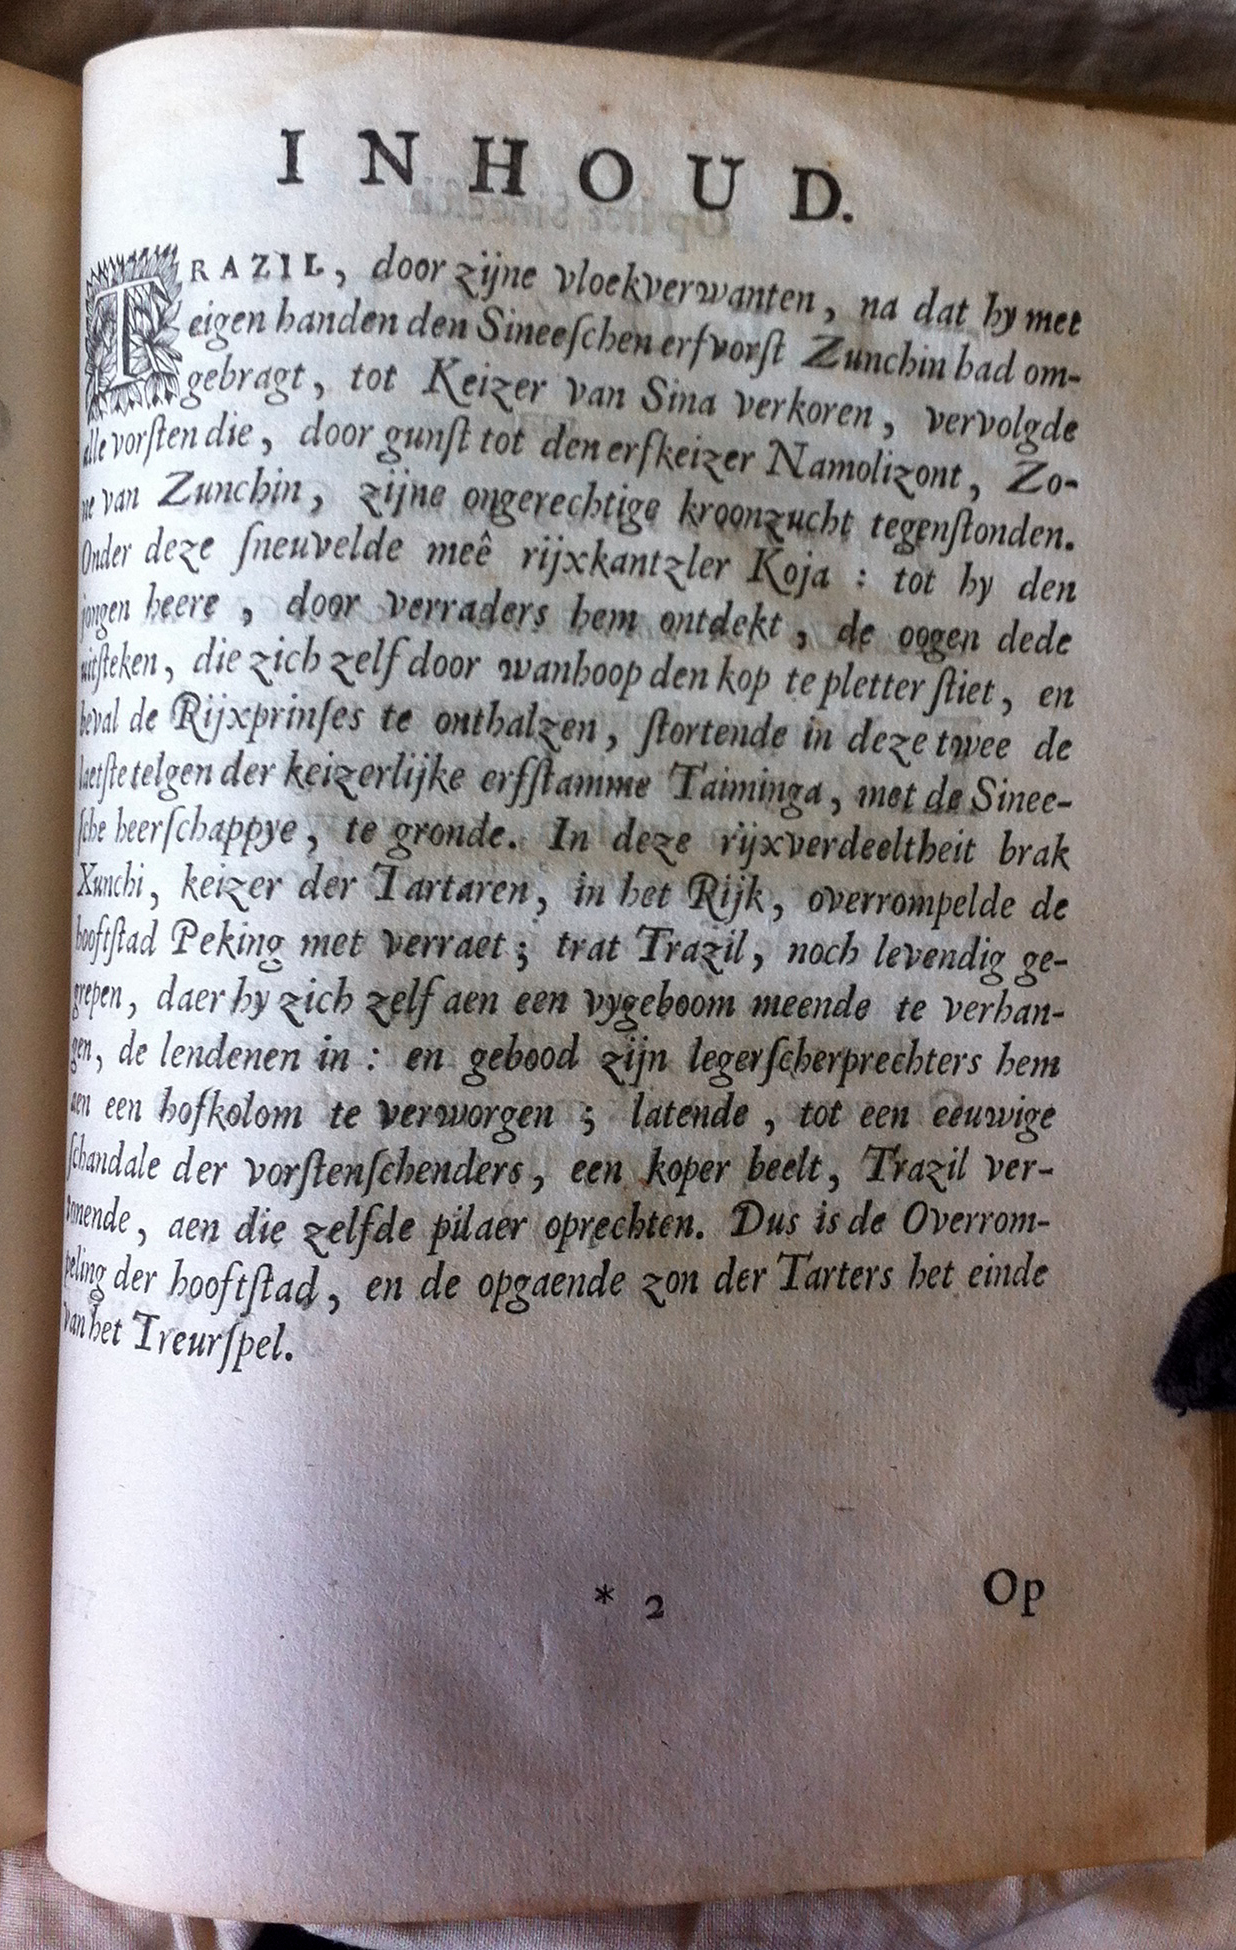 INHOUD.
TRAZIL, door zijne vloekverwanten, na dat hy met
eigen handen den Sineeſchen erfvorſt Zunchin had om-
gebragt, tot Keizer van Sina verkoren, vervolgde
alle vorſten die, door gunſt tot den erfkeizer Namolizont, Zo-
ne van Zunchin, zijne ongerechtige kroonzucht tegenſtonden.
Onder deze ſneuvelde meê rijxkantzler Koja : tot hy den
jongen heere, door verraders hem ontdekt, de oogen dede
uitſteken, die zich zelf door wanhoop den kop te pletter ſtiet, en
beval de Rijxprinſes te onthalzen, ſtortende in deze twee de
laetſte telgen der keizerlijke erfſtamme Taiminga, met de Sinee-
ſche heerſchappye, te gronde. In deze rijxverdeeltheit brak
Xunchi, keizer der Tartaren, in het Rijk, overrompelde de
hooftſtad Peking met verraet ; trat Trazil, noch levendig ge-
grepen, daer hy zich zelf aen een vygeboom meende te verhan-
gen, de lendenen in : en gebood zijn legerſcherprechters hem
aen een hofkolom te verworgen ; latende, tot een eeuwige
ſchandale der vorſtenſchenders, een koper beelt, Trazil ver-
tonende, aen die zelfde pilaer oprechten. Dus is de Overrom-
peling der hooftſtad, en de opgaende zon der Tarters het einde
van het Treurſpel.
* 2
Op